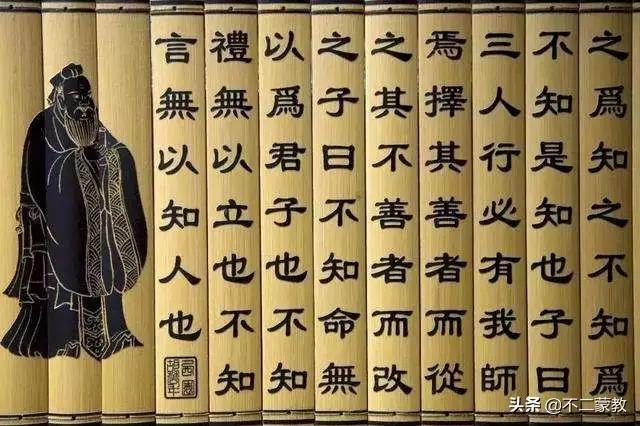 之爲知之不知爲
不知是知也子曰
三人行必有我師
焉擇其善者而從
之其不善者而改
之子曰不知命無
以爲君子也不知
禮無以立也不知
言無以知人也
头条 @不二蒙教